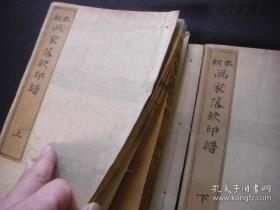 本朝画家落欵印譜
上
本朝画家落欵印譜
下
孔夫子旧书网